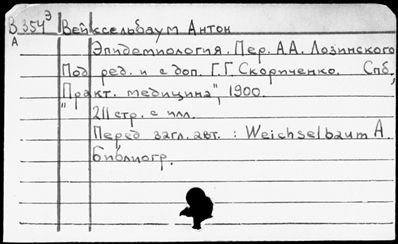 В 354э Вейксельбаум Антон
А
Эпидемиология. Пер. А.А. Лозинского
Под ред. и с доп. Г.Г. Скориченко. Спб,
"Практ. медицина", 1900.
211 стр. с илл.
Перед загл. авт. : Weichselbaum A.
Библиогр.